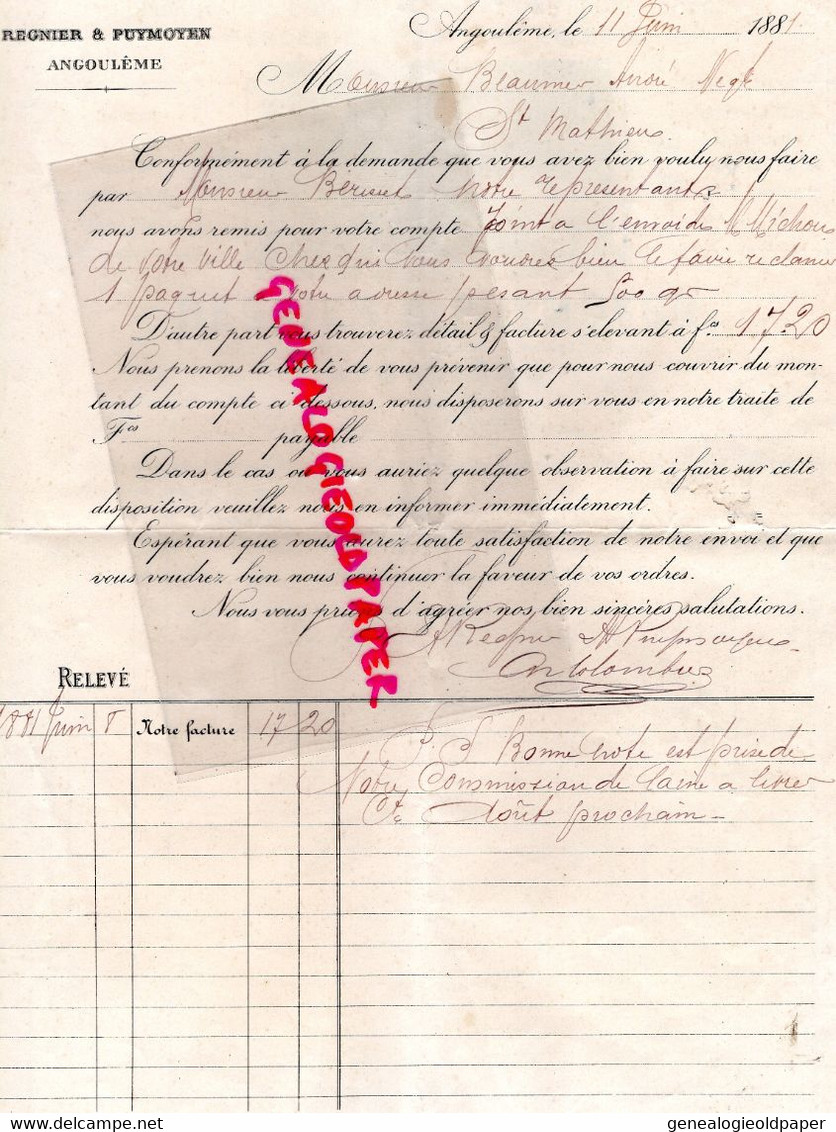 REGNIER & PUYMOYEN
ANGOULÊME
Angoulême, le 11 Juin 1881.
Monsieur Beaumier André Negt
St Mathieu
Conformément à la demande que vous avez bien voulu nous faire
par Monsieur notre representant
nous avons remis pour votre compte Joint a l'envoi de M Michou
de votre ville chez qui vous voudrez bien le faire reclamer
1 paquet votre adresse pesant 500 gr
D'autre part vous trouverez détail & facture s'élevant à fcs 17 20
Nous prenons la liberté de vous prévenir que pour nous couvrir du mon-
tant du compte ci dessous, nous disposerons sur vous en notre traite de
Fcs payable
Dans le cas où vous auriez quelque observation à faire sur cette
disposition veuillez nous en informer immédiatement.
Espérant que vous aurez toute satisfaction de notre envoi et que
vous voudrez bien nous continuer la faveur de vos ordres.
Nous vous prions d'agréer nos bien sincères salutations.
A Regnier Puymoyen
RELEVÉ
1881 Juin 8 Notre facture 17 20
P. S Bonne note est prise de
Votre Commission de laine a livrer
Ct Août prochain -
GENEALOGIEOLDPAPER
www.delcampe.net
genealogieoldpaper